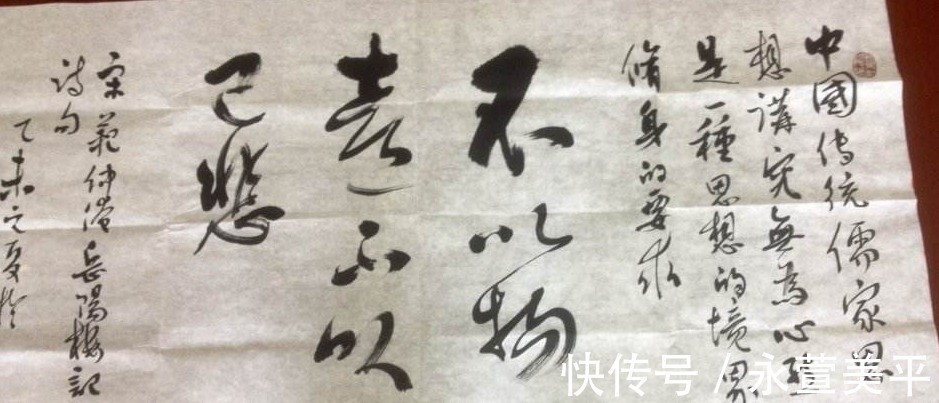 中國传统儒家思
想講究無為心理
是一種思想的境界
脩身的要求
不以物
喜不以
己悲
宋范仲淹岳陽樓記
诗句
乙未之夏於
快传号 / 永萱美平